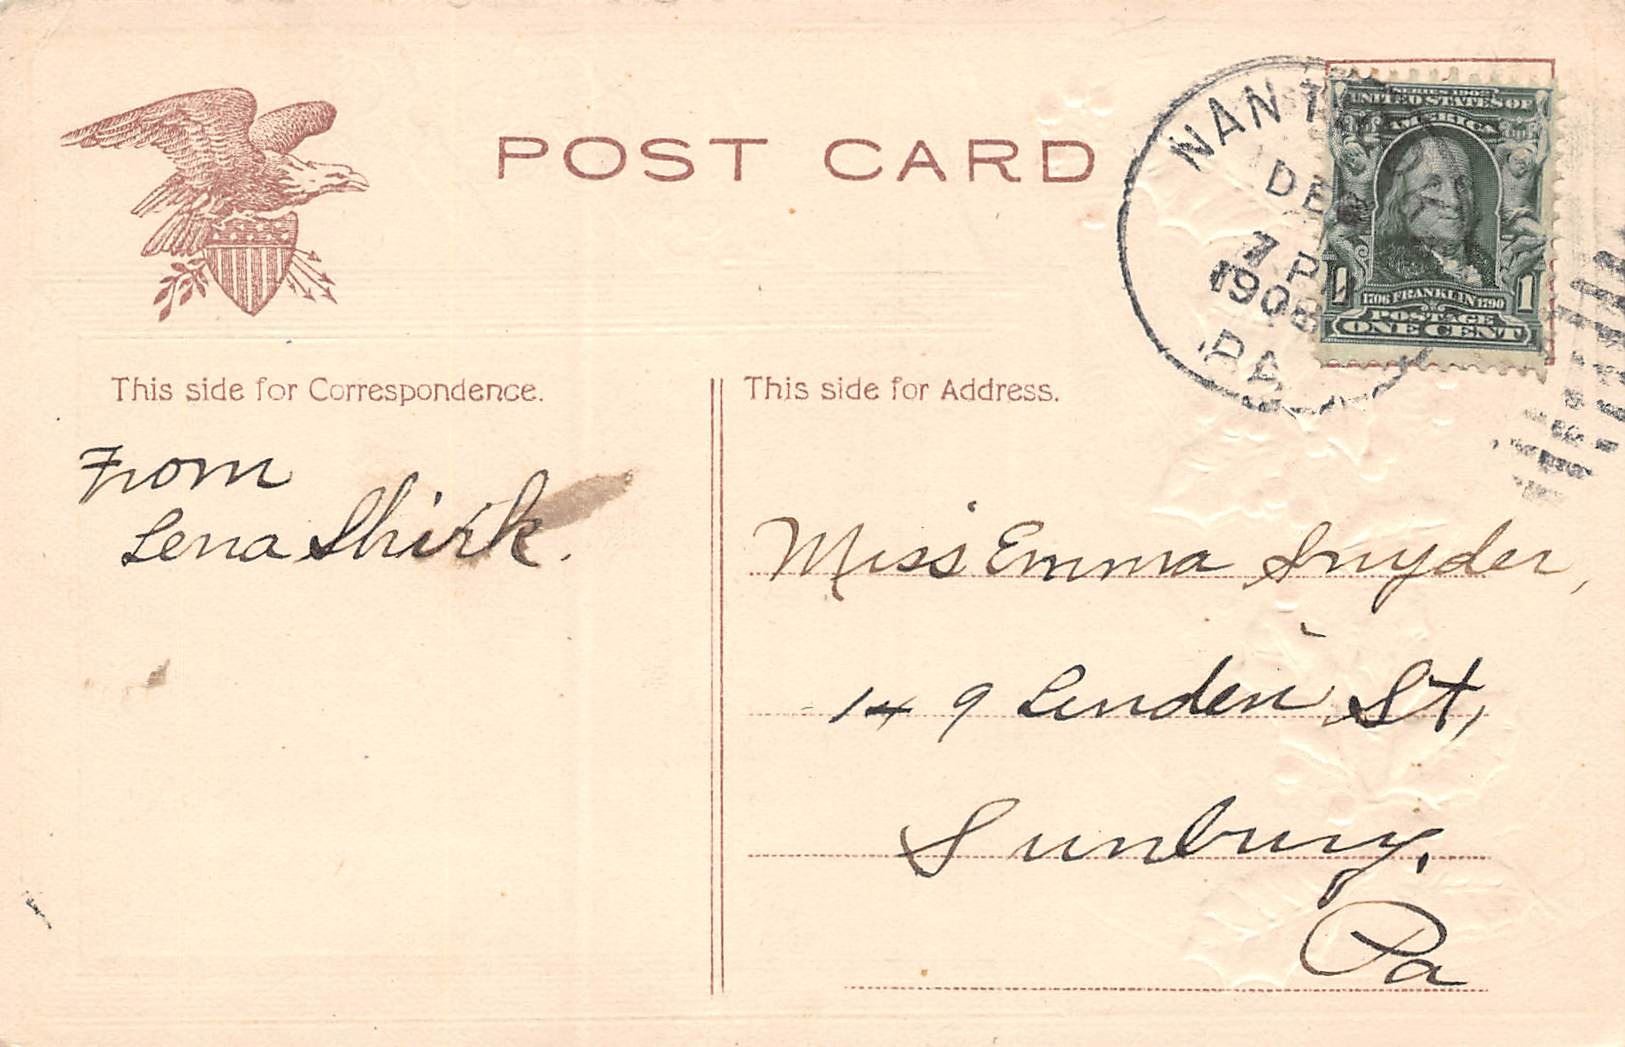 POST CARD
NANTI
DEC
7 PM
1908
PA
SERIES 1902
UNITED STATES OF
AMERICA
1706 FRANKLIN 1790
1 1
POSTAGE
ONE CENT
This side for Correspondence.
From
Lena Shirk.
This side for Address.
Miss Emma Snyder,
149 Linden St,
Sunbury,
Pa